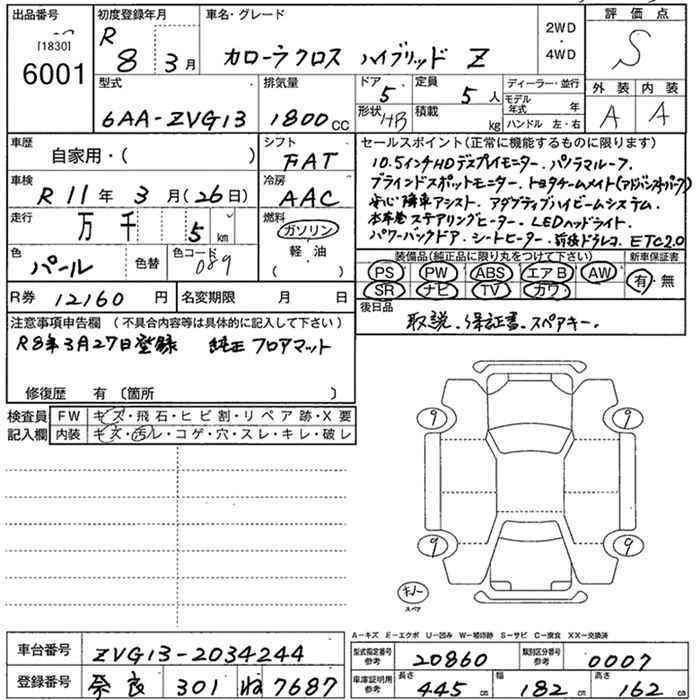 出品番号
[1830]
6001
初度登録年月
R 8年 3月
車名・グレード
カローラクロス ハイブリッド Z
2WD
・
4WD
評価点
S
外装 内装
A A
型式
6AA-ZVG13
排気量
1800 CC
ドア
5
形状 HB
定員
5人
積載
kg
ディーラー・並行
モデル年式 年
ハンドル 左・右
車歴
自家用・( )
シフト
FAT
車検
R 11年 3月(26日)
冷房
AAC
走行
万 千 5 km
燃料
ガソリン
軽・油
( )
色
パール
色替
色コード
089
R券 12160 円
名変期限 月 日
セールスポイント(正常に機能するものに限ります)
10.5インチHDディスプレイモニター、パノラマルーフ、
ブラインドスポットモニター、トヨタチームメイト(アドバンストパーク)
安心降車アシスト、アダプティブハイビームシステム、
本革巻ステアリングヒーター、LEDヘッドライト、
パワーバックドア、シートヒーター、前後ドラレコ、ETC2.0
装備品(純正品に限り丸をつけて下さい)
新車保証書
PS PW ABS エアB AW
SR ナビ TV カワ
有・無
後日品
取説、保証書、スペアキー、
注意事項申告欄 (不具合内容等は具体的に記入して下さい)
R8年3月27日登録 純正フロアマット
修復歴 有 〔箇所 〕
検査員
記入欄
FW キズ・飛石・ヒビ割・リペア跡・X要
内装 キズ・汚レ・コゲ・穴・スレ・キレ・破レ
9 9
9 9
キノー
スペア
A-キズ E-エクボ U-凹み W-補修跡 S-サビ C-腐食 XX-交換済
車台番号 ZVG13-2034244
登録番号 奈良 301 ね 7687
型式指定番号
参考
20860
類別区分番号
参考
0007
車庫証明用
参考
長さ 445 cm
幅 182 cm
高さ 162 cm